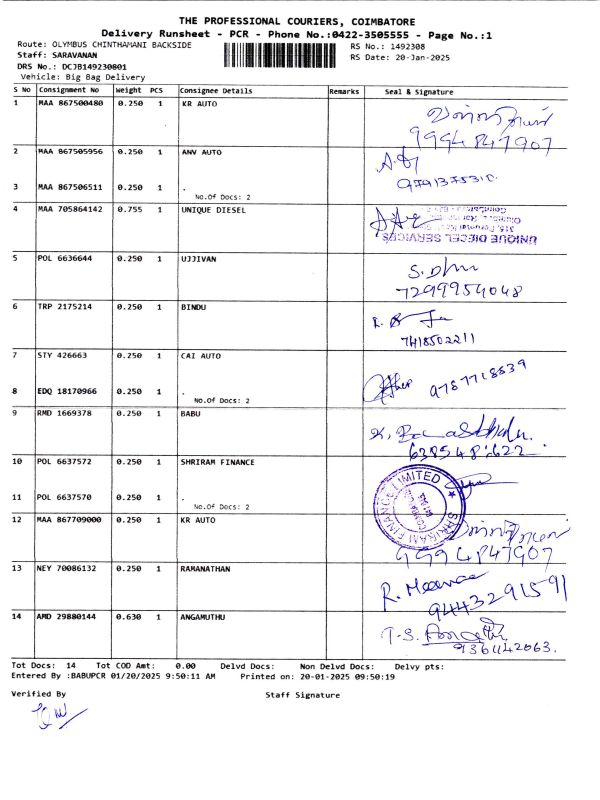 THE PROFESSIONAL COURIERS, COIMBATORE
Delivery Runsheet - PCR - Phone No.:0422-3505555 - Page No.:1
Route: OLYMBUS CHINTHAMANI BACKSIDE
RS No.: 1492308
Staff: SARAVANAN
RS Date: 20-Jan-2025
DRS No.: DCJB149230801
Vehicle: Big Bag Delivery
S No Consignment No Weight PCS Consignee Details Remarks Seal & Signature
1 MAA 867500480 0.250 1 KR AUTO
9994847907
2 MAA 867505956 0.250 1 ANV AUTO
9791375310
3 MAA 867506511 0.250 1 .
No.Of Docs: 2
4 MAA 705864142 0.755 1 UNIQUE DIESEL
UNIQUE DIESEL SERVICES
5 POL 6636644 0.250 1 UJJIVAN
7299954048
6 TRP 2175214 0.250 1 BINDU
7418502211
7 STY 426663 0.250 1 CAI AUTO
9787718839
8 EDQ 18170966 0.250 1 .
No.Of Docs: 2
9 RMD 1669378 0.250 1 BABU
10 POL 6637572 0.250 1 SHRIRAM FINANCE
SHRIRAM FINANCE LIMITED
11 POL 6637570 0.250 1 .
No.Of Docs: 2
12 MAA 867709000 0.250 1 KR AUTO
9994847907
13 NEY 70086132 0.250 1 RAMANATHAN
R. Meenaa
9443291591
14 AMD 29880144 0.630 1 ANGAMUTHU
T-S.
9361142063.
Tot Docs: 14 Tot COD Amt: 0.00 Delvd Docs: Non Delvd Docs: Delvy pts:
Entered By :BABUPCR 01/20/2025 9:50:11 AM Printed on: 20-01-2025 09:50:19
Verified By Staff Signature